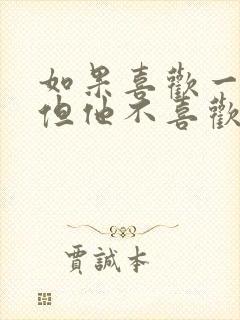 如果喜歡一
但他不喜歡
賈誠本